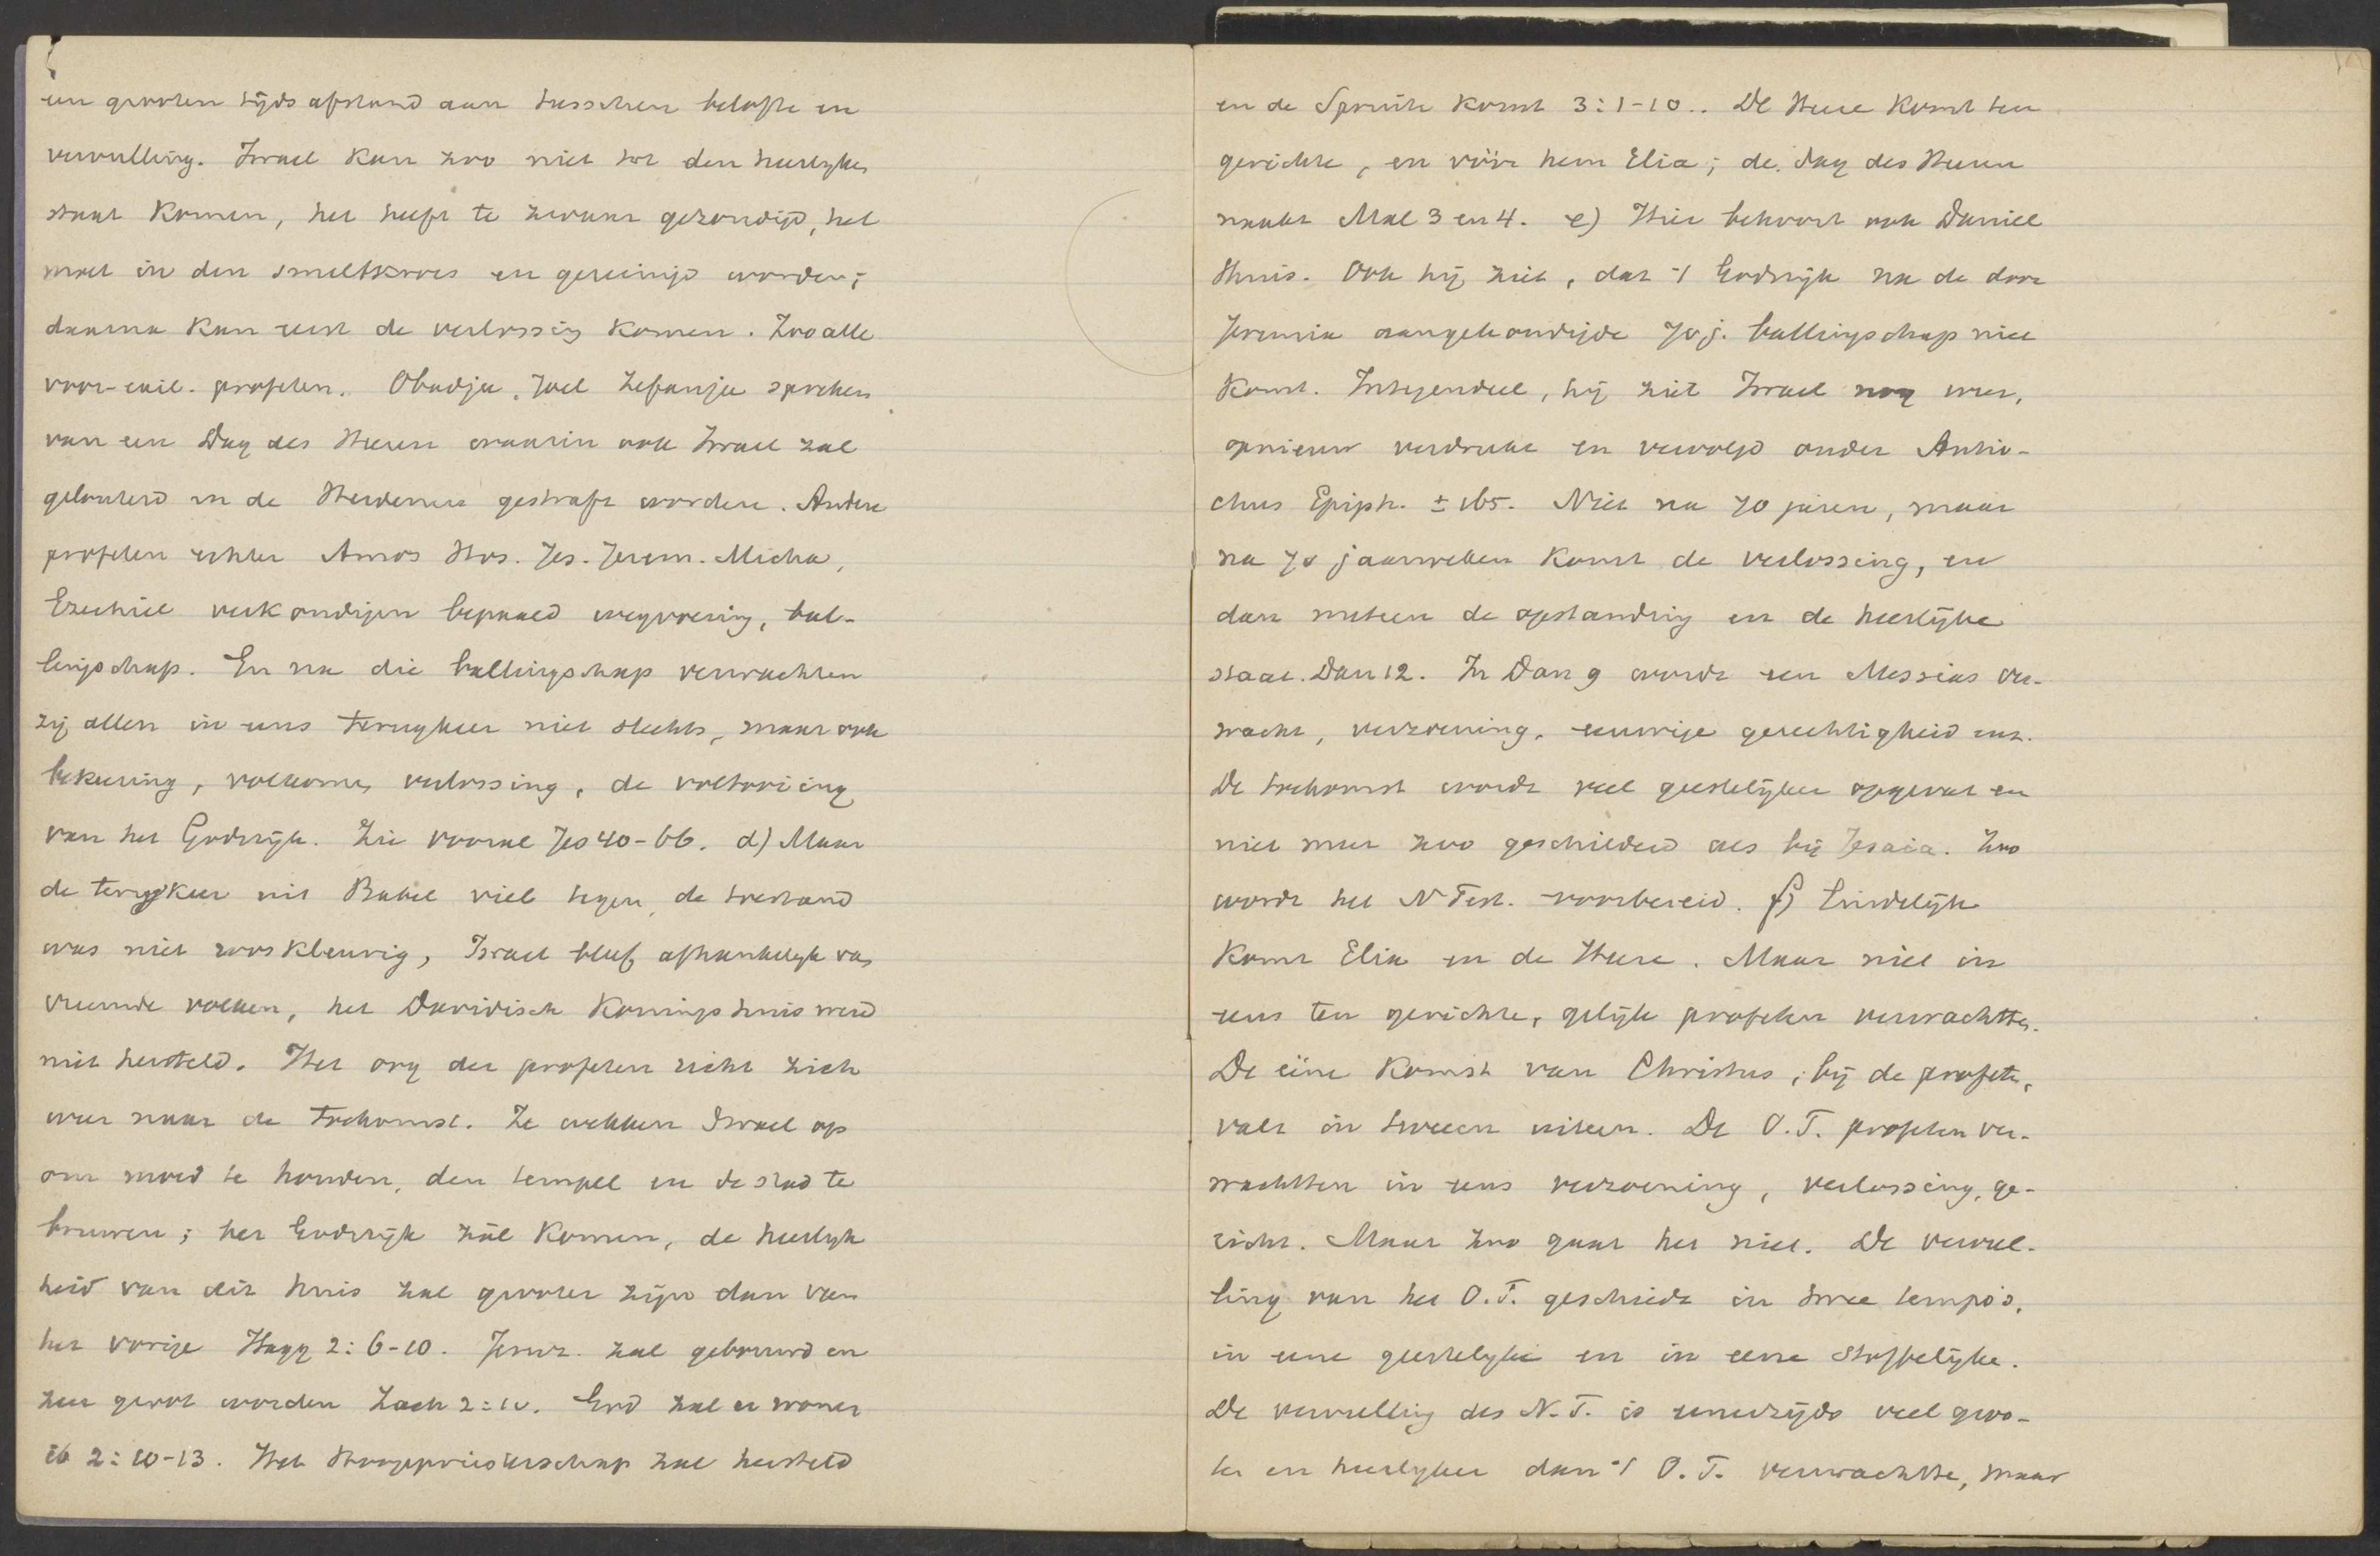 een grooten tijdsafstand aan tusschen belofte en
vervulling. Israel kan zoo niet tot den heerlijken
staat komen, het heeft te zwaar gezondigd, het
moet in den smeltkroes en gereinigd worden;
daarna kan eerst de verlossing komen. Zoo alle
voor-exil. profeten. Obadja, Joel Zefanja spreken
van een Dag des Heeren waarin ook Israel zal
gelouterd en de Heidenen gestraft worden. Andere
profeten echter Amos Hos. Jes. Jerem. Micha,
Ezechiel verkondigen bepaald wegvoering, bal-
lingschap. En na die ballingschap verwachten
zij allen in eens terugkeer niet slechts, maar ook
bekeering, volkomen verlossing, de voltooiing
van het Godsrijk. Zie vooral Jes 40-66. d) Maar
de terugkeer uit Babel viel tegen, de toestand
was niet rooskleurig, Israel bleef afhankelijk van
vreemde volken, het Davidisch Koningshuis werd
niet hersteld. Het oog der profeten richt zich
weer naar de toekomst. Ze wekken Israel op
om moed te houden, den tempel en de stad te
bouwen; het Godsrijk zál komen, de heerlijk
heid van dit huis zal grooter zijn dan van
het vorige Hagg 2:6-10. Jeruz. zal gebouwd en
zeer groot worden Zach 2:10. God zal er wonen
ib 2:10-13. Het Hoogepriesterschap zal hersteld
en de Spruite komt 3:1-10.. De Heere komt ten
gerichte, en vóór hem Elia; de dag des Heeren
naakt Mal 3 en 4. e) Hier behoort ook Daniel
thuis. Ook hij ziet, dat 't Godsrijk na de door
Jeremia aangekondigde 70 j. ballingschap niet
komt. Integendeel, hij ziet Israel nog weer,
opnieuw verdrukt en vervolgd onder Antio-
chus Epiph. ± 165. Niet na 70 jaren, maar
na 70 jaarweken komt de verlossing, en
dan meteen de opstanding en de heerlijke
staat. Dan 12. In Dan 9 wordt een Messias ver-
wacht, verzoening, eeuwige gerechtigheid enz.
De toekomst wordt veel geestelijker opgevat en
niet meer zoo geschilderd als bij Jesaia. Zoo
wordt het N Test. voorbereid. f) Eindelijk
komt Elia en de Heere. Maar niet in
eens ten gerichte, gelijk profeten verwachtten.
De ééne komst van Christus, bij de profeten,
valt in tweeen uiteen. De O.T. profeten ver-
wachtten in eens verzoening, verlossing, ge-
richt. Maar zoo gaat het niet. De vervul-
ling van het O.T. geschiedt in twee tempo's,
in eene geestelijke en in eene stoffelijke.
De vervulling des N.T. is eenerzijds veel groo-
ter en heerlijker dan 't O.T. verwachtte, maar